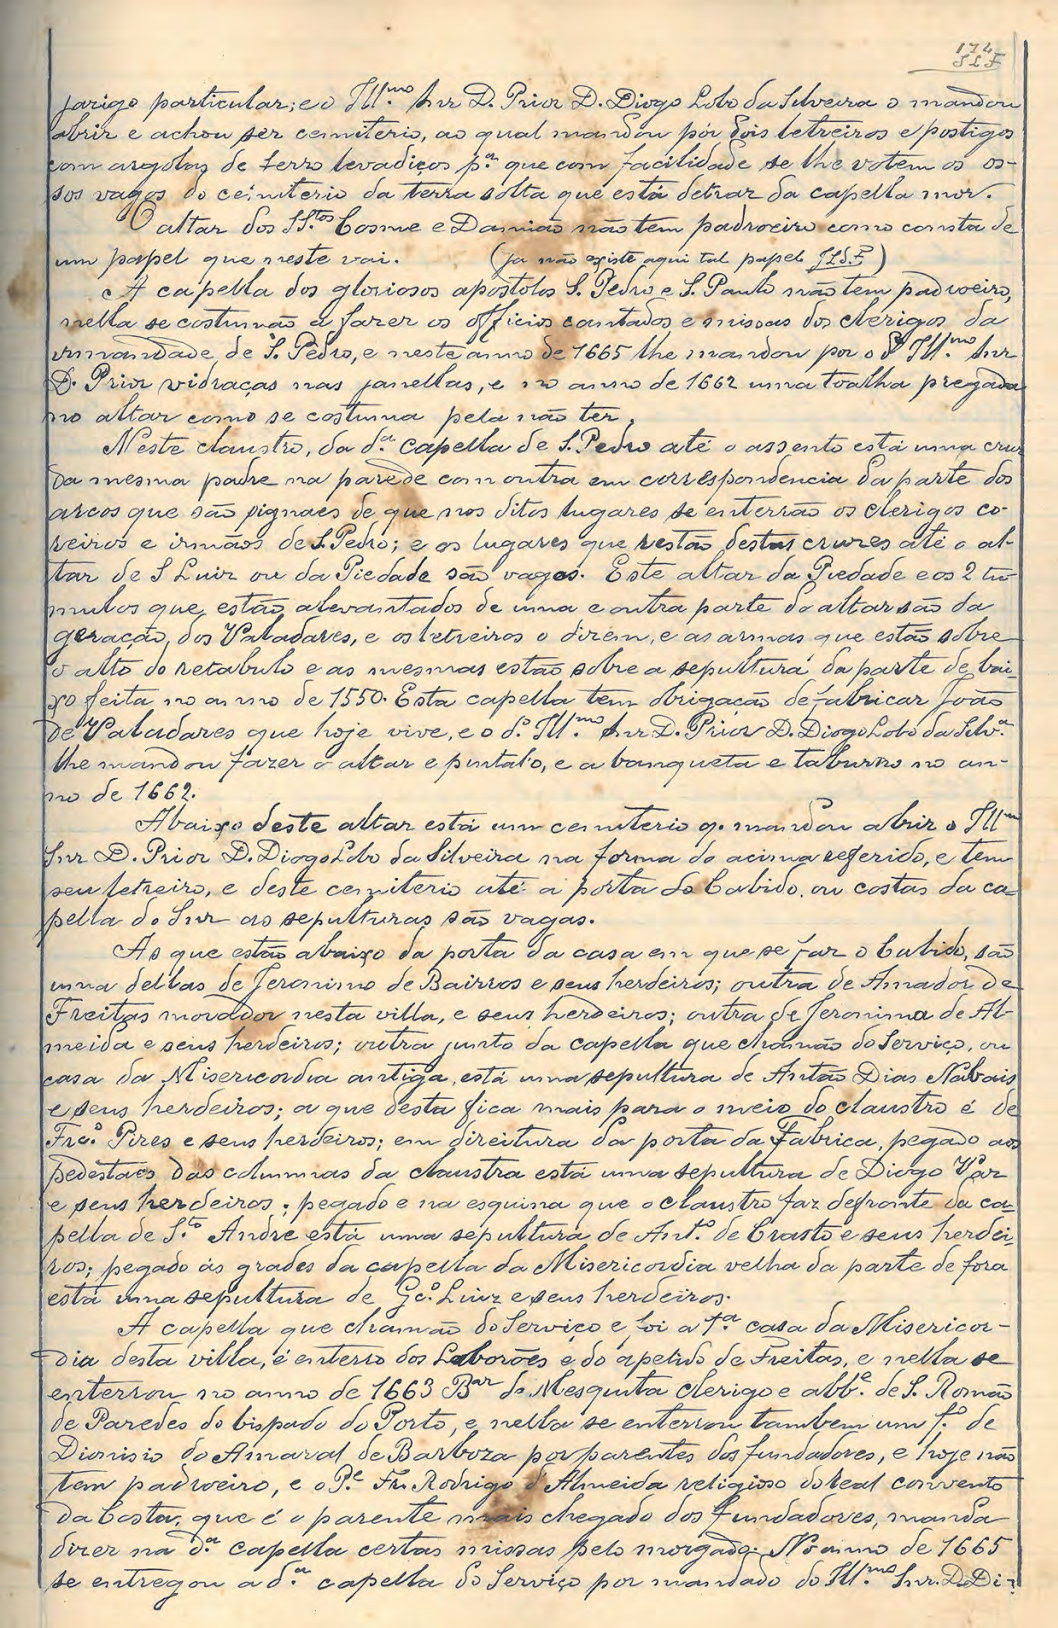 174
JLF
jazigo particular; e o Ill.mo Snr D. Prior D. Diogo Lobo da Silveira o mandou
abrir e achou ser cemiterio, ao qual mandou pôr dois letreiros e postigos
com argolas de ferro levadiços p.a que com facilidade se lhe votem os os-
sos vagos do cemiterio da terra solta que está detraz da capella mor.
O altar dos SS.tos Cosme e Damião não tem padroeiro como consta de
um papel que neste vai. (já não existe aqui tal papel JLdF)
A capella dos gloriosos apostolos S. Pedro e S. Paulo não tem padroeiro,
nella se costumão a fazer os officios cantados e missas dos clerigos da
irmandade de S. Pedro, e neste anno de 1665 lhe mandou por o Ill.mo Snr
D. Prior vidraças nas janellas, e no anno de 1662 uma toalha pregada
no altar como se costuma pela não ter.
Neste claustro, da d.a capella de S. Pedro até o assento está uma cruz
da mesma padre na parede com outra em correspondencia da parte dos
arcos que são signaes de que nos ditos lugares se enterrão os clerigos co-
reiros e irmãos de S. Pedro; e os lugares que restão destas cruzes até o al-
tar de S Luiz ou da Piedade são vagos. Este altar da Piedade e os 2 tu-
mulos que estão alevantados de uma e outra parte do altar são da
geração dos Valadares, e os letreiros o dizem, e as armas que estão sobre
o alto do retabulo e as mesmas estão sobre a sepultura da parte de bai-
xo feita no anno de 1550. Esta capella tem obrigação de fabricar João
de Valadares que hoje vive, e o d.o Ill.mo Snr D. Prior D. Diogo Lobo da Silv.a
lhe mandou fazer o altar e pintalo, e a banqueta e taburno no an-
no de 1662.
Abaixo deste altar está um cemiterio q. mandou abrir o Ill.mo
Snr D. Prior D. Diogo Lobo da Silveira na forma do acima referido, e tem
seu letreiro, e deste cemiterio até a porta do Cabido, ou costas da ca-
pella do Snr as sepulturas são vagas.
As que estão abaixo da porta da casa em que se faz o Cabido, são
uma dellas de Jeronimo de Bairros e seus herdeiros; outra de Amador de
Freitas morador nesta villa, e seus herdeiros; outra de Jeronima de Al-
meida e seus herdeiros; outra junto da capella que chamão do Serviço, ou
casa da Misericordia antiga, está uma sepultura de Antão Dias Nabais
e seus herdeiros; a que desta fica mais para o meio do claustro é de
Frc.o Pires e seus herdeiros; em direitura da porta da Fabrica, pegado aos
pedestaes das columnas da claustra está uma sepultura de Diogo Vaz
e seus herdeiros; pegado e na esquina que o claustro faz defronte da ca-
pella de S.to André está uma sepultura de Ant.o de Crasto e seus herdei-
ros; pegado ás grades da capella da Misericordia velha da parte de fora
está uma sepultura de Gc.o Luiz e seus herdeiros.
A capella que chamão do Serviço e foi a 1.a casa da Misericor-
dia desta villa, é enterro dos Laborões e do apelido de Freitas, e nella se
enterrou no anno de 1663 B.ar de Mesquita clerigo e abb.e de S. Romão
de Paredes do bispado do Porto, e nella se enterrou tambem um f.o de
Dionisio do Amaral de Barboza por parentes dos fundadores, e hoje não
tem padroeiro, e o P.e Fr. Rodrigo d'Almeida religioso do real convento
da Costa, que é o parente mais chegado dos fundadores, manda
dizer na d.a capella certas missas pelo morgado. No anno de 1665
se entregou a d.a capella do Serviço por mandado do Ill.mo Snr. D. Di-